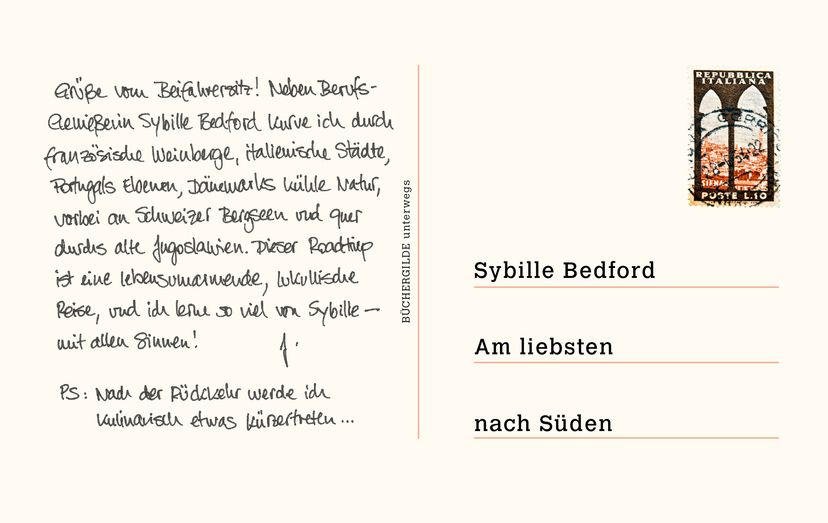 Grüße vom Beifahrersitz! Neben Berufs-
Genießerin Sybille Bedford kurve ich durch
französische Weinberge, italienische Städte,
Portugals Ebenen, Dänemarks kühle Natur,
vorbei an Schweizer Bergseen und quer
durchs alte Jugoslawien. Dieser Roadtrip
ist eine lebensumarmende, lukullische
Reise, und ich lerne so viel von Sybille –
mit allen Sinnen! J.
PS: Nach der Rückkehr werde ich
kulinarisch etwas kürzertreten...
BÜCHERGILDE unterwegs
REPUBBLICA
ITALIANA
SIENA
POSTE L.10
Sybille Bedford
Am liebsten
nach Süden